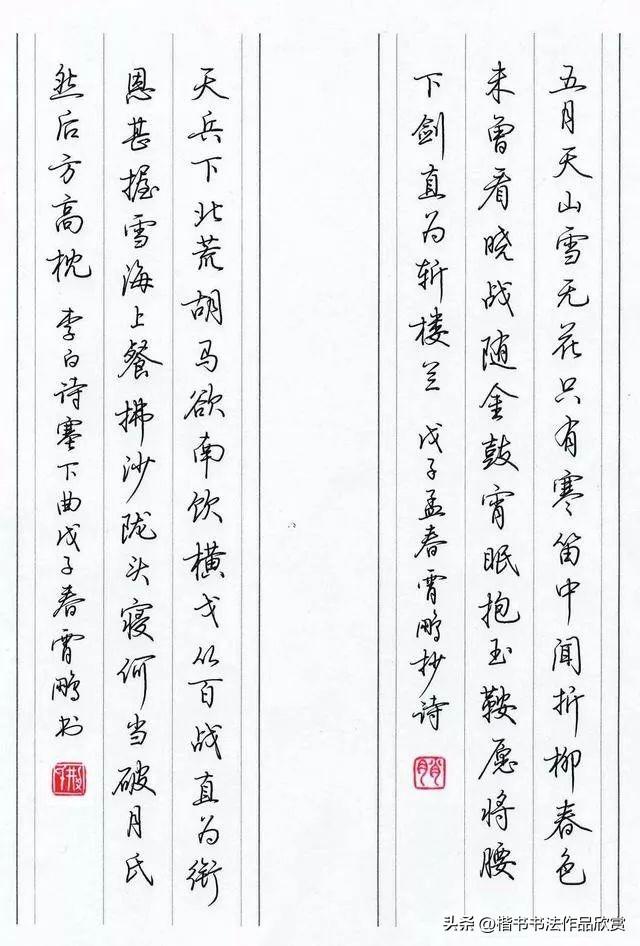 五月天山雪无花只有寒笛中闻折柳春色
未曾看晓战随金鼓宵眠抱玉鞍愿将腰
下剑直为斩楼兰 戊子孟春霄鹏抄诗
天兵下北荒胡马欲南饮横戈从百战直为衔
恩甚握雪海上餐拂沙陇头寝何当破月氏
然后方高枕 李白诗塞下曲戊子春霄鹏书
头条 @楷书书法作品欣赏